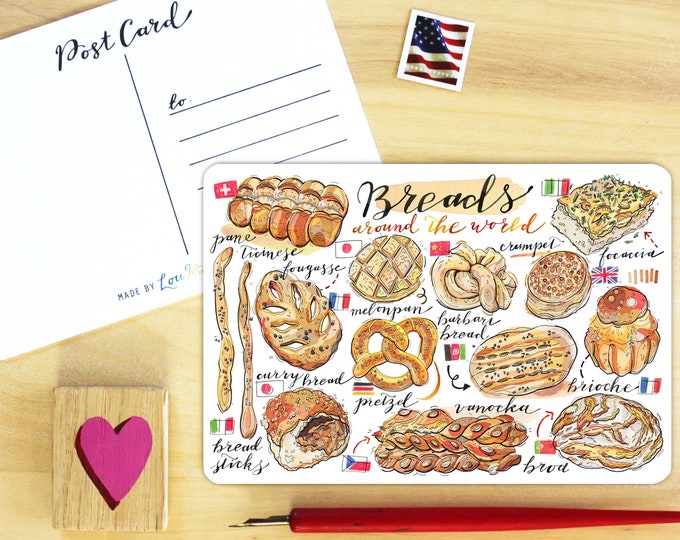 Post Card
to:
MADE BY
Breads
around the world
pane
ticinese
fougasse
melonpan
crumpet
focaccia
barbari
bread
curry bread
pretzel
brioche
vanocka
bread
sticks
broa